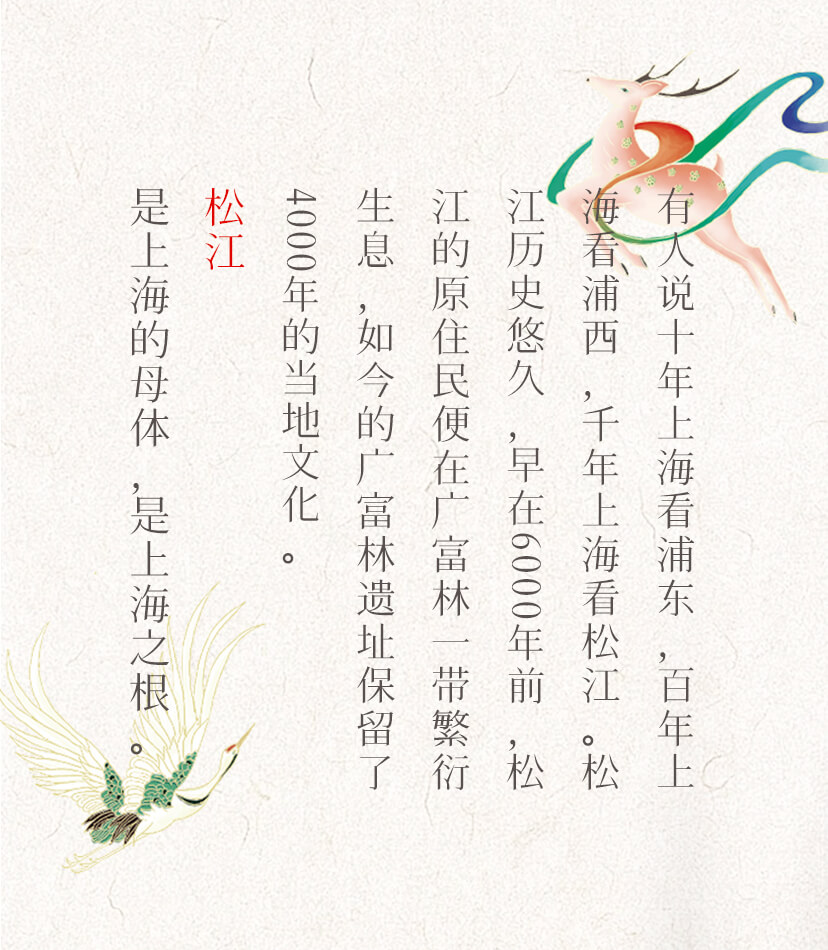 有人说十年上海看浦东,百年上
海看浦西,千年上海看松江。松
江历史悠久,早在6000年前,松
江的原住民便在广富林一带繁衍
生息,如今的广富林遗址保留了
4000年的当地文化。
松江
是上海的母体,是上海之根。